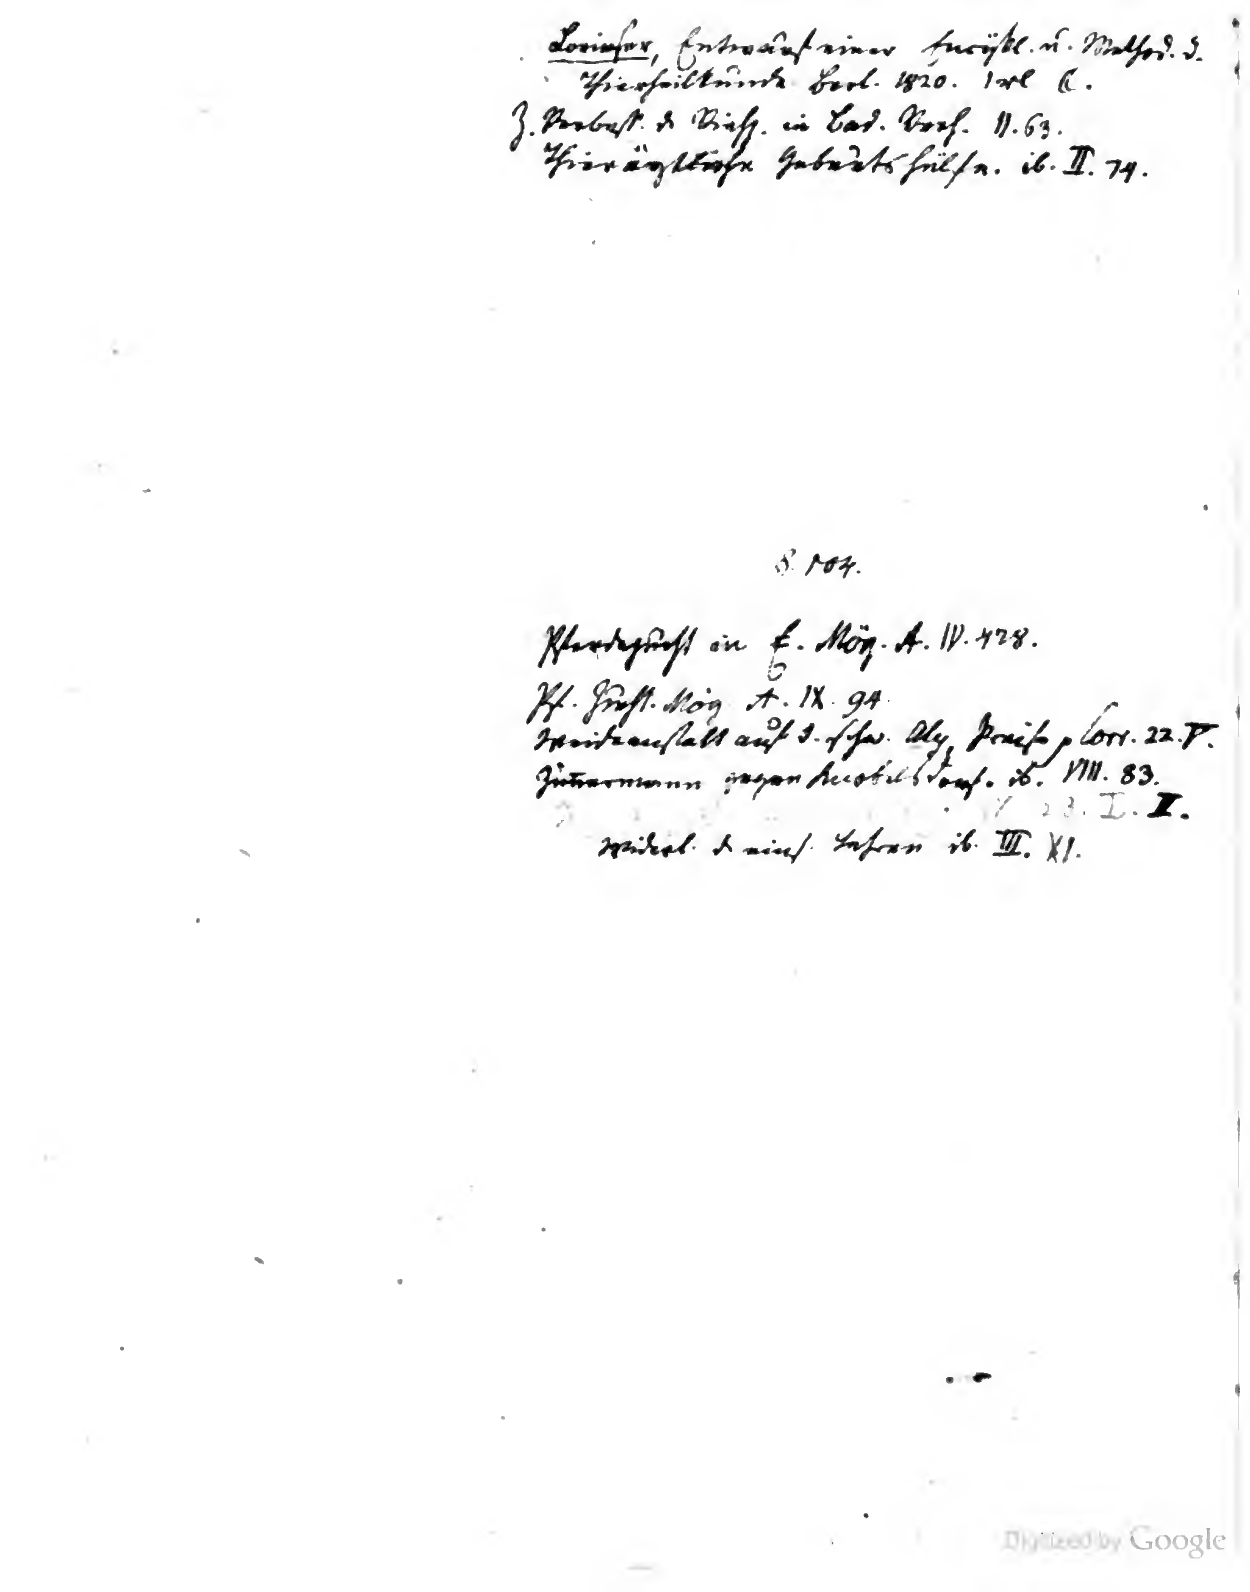 Lorinser, Entwurf einer Encykl. u. Method. d.
Thierheilkunde Berl. 1820. 1 rl
Z. Verbess. d Viehz. in Bad. Verh. II. 63.
Thierärztliche Geburtshülfe. ib. II. 74.
§. 104.
Pferdezucht in E. Mög. A. IV. 428.
Pf. Zucht. Mög A. IX. 94
Weideanstalt auf d. schw. Alp, Corr. 22. V.
Zimmermann gegen ib. VIII. 83.
23. I. II.
Widerl. d einf. Lehren ib. III. XI.
Digitized by Google